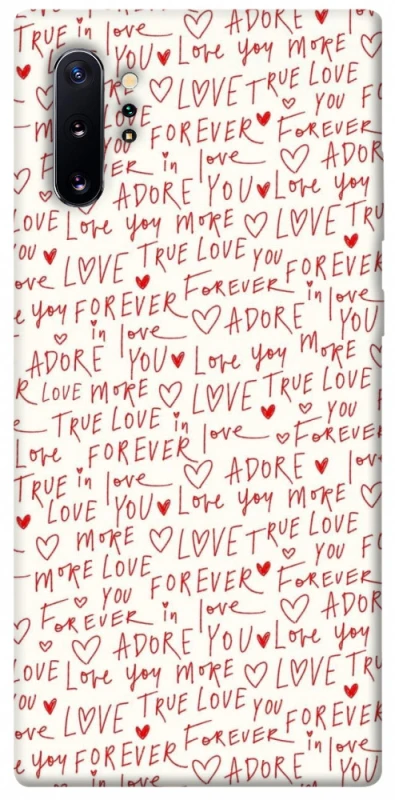 TRUE in love ADORE
LOVE YOU Love you MORE
LOVE TRUE LOVE
MORE LOVE YOU FOREVER
FOREVER FOREVER
in love ADORE
ADORE YOU Love you
LOVE Love you MORE LOVE TRU
YOU TRUE LOVE YOU FOREVER
ove LOVE FOREVER in love
e you FOREVER ADORE YOU
in love
ADORE YOU Love you MORE
R LOVE MORE LOVE TRUE LOVE
TRUE LOVE in love YOU
Love FOREVER FOREVER
TRUE in love ADORE love
LOVE YOU Love you MORE
MORE LOVE TRUE LOVE
MORE LOVE FOREVER YOU F
FOREVER in love FOREVER
ADORE YOU ADOR
Love you
LOVE Love you MORE LOVE TRU
YOU TRUE LOVE YOU FOREVER
ove LOVE FOREVER in love
e you FOREVER ADORE YOU
in love